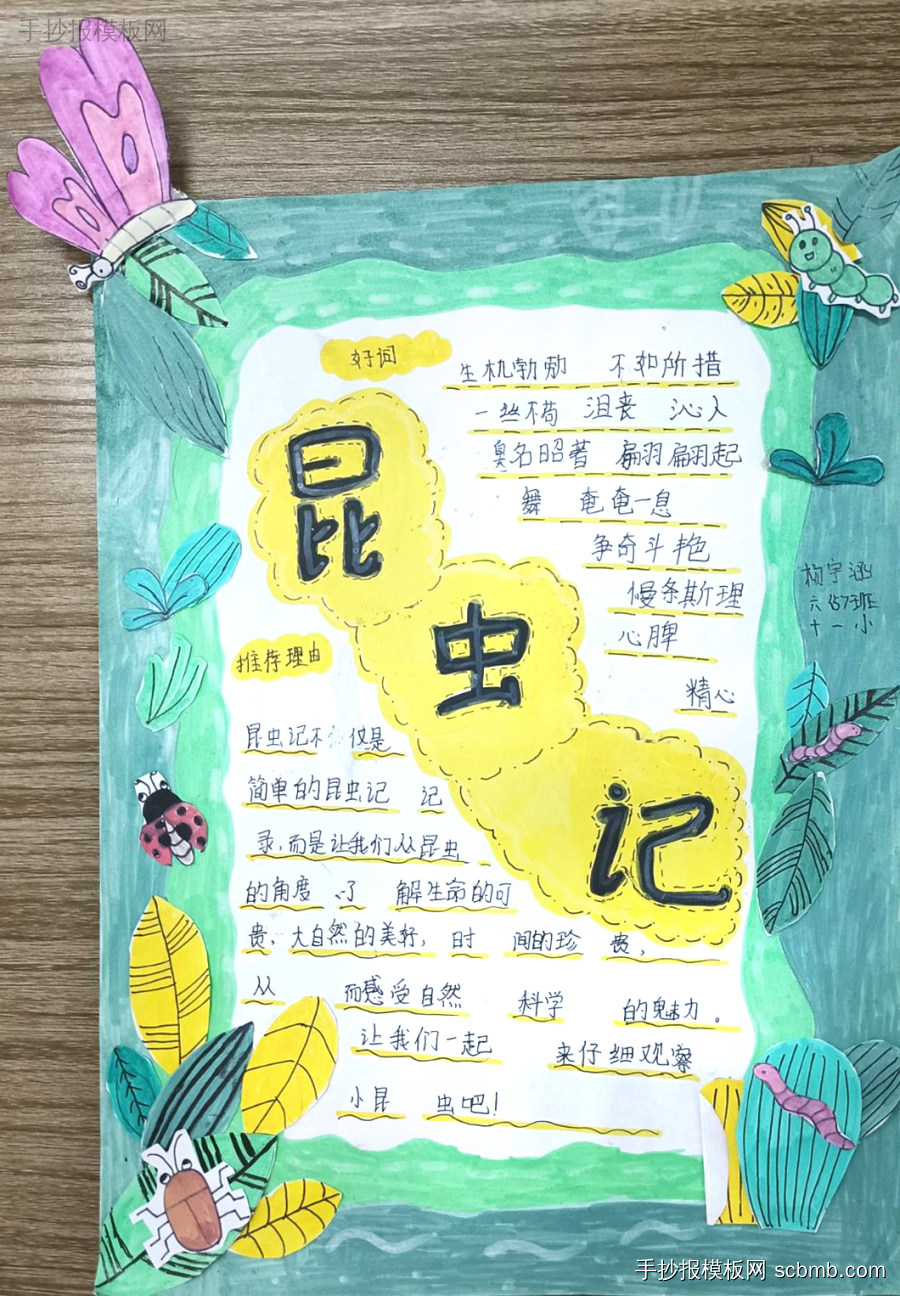 手抄报模板网
好词
生机勃勃 不知所措
一丝不苟 沮丧 沁人
臭名昭著 翩翩起
舞 奄奄一息
争奇斗艳
慢条斯理
心脾
精心
昆
虫
记
杨宇涵
六(6)班
十一小
推荐理由
昆虫记不仅是
简单的昆虫记 记
录,而是让我们从昆虫
的角度 了 解生命的可
贵,大自然的美好, 时 间的珍 贵,
从 而感受自然 科学 的魅力。
让我们一起 来仔细观察
小昆 虫吧!
手抄报模板网 scbmb.com